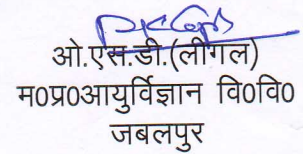 ओ.एस.डी.(लीगल)
म0प्र0आयुर्विज्ञान वि0वि0
जबलपुर